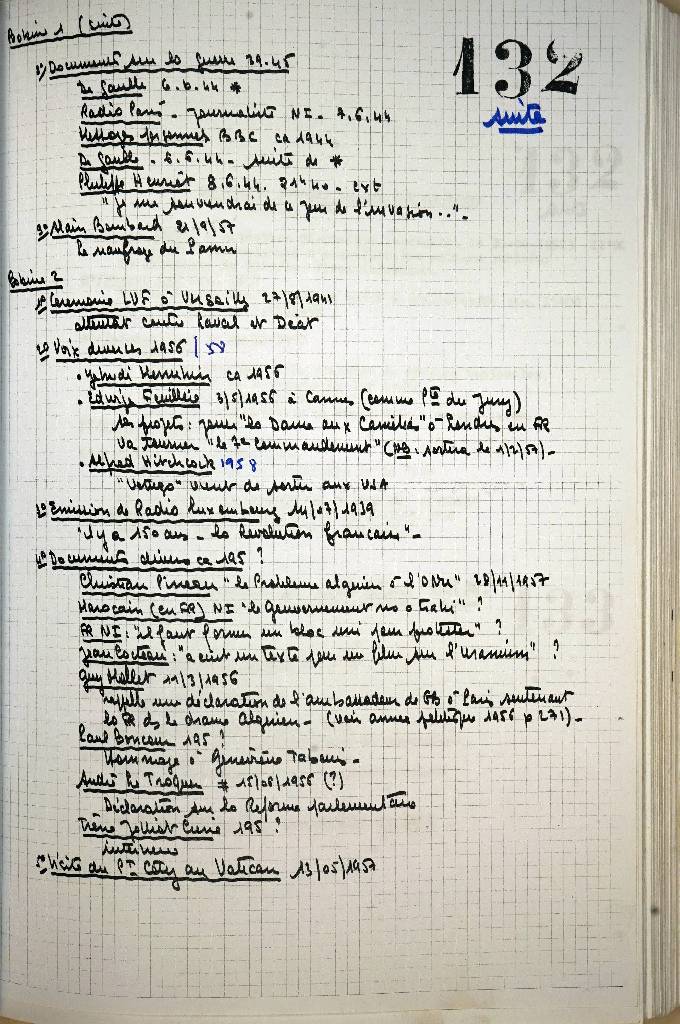 Bobine 1 (suite)
132
suite
1°/ Documents sur la guerre 39.45
De Gaulle 6.6.44 *
Radio Paris - journaliste NI - 7.6.44
Messages personnels BBC ca 1944
De Gaulle - 6.6.44 - suite de *
Philippe Henriot 8.6.44. 21h40 - ext
"Je me souviendrai de ce jour de l'invasion..." -
2° Alain Bombard 21/9/57
Le naufrage du
Bobine 2
1° Ceremonie LVF à Versailles 27/8/1941
attentat contre Laval et Déat
2° Voix diverses 1956 / 58
• Yehudi Menuhin ca 1956
• Edwige Feuillère 3/5/1956 à Cannes (comme Pte du Jury)
ses projets : jouer "la Dame aux Camélias" à Londres en FR
va tourner "le 7e commandement" (NB : sortira le 1/2/57) -
• Alfred Hitchcock 1958
"Vertigo" vient de sortir aux USA
3° Emission de Radio Luxembourg 14/07/1939
"il y a 150 ans - la Révolution française" -
4° Documents divers ca 195 ?
Christian Pineau "le Problème algérien à l'ONU" 28/11/1957
Marocain (en FR) NI "le Gouvernement nous a trahi" ?
FR NI : "il faut former un bloc uni pour protester" ?
Jean Cocteau : "a écrit un texte pour un film sur l'uranium" ?
Guy Mollet 11/3/1956
rappelle une déclaration de l'ambassadeur de GB à Paris soutenant
la FR ds le drame Algérien - (voir année politique 1956 p 271) -
Paul Boncour 195 ?
Hommage à Geneviève Tabouis -
André Le Troquer # 15/05/1956 (?)
Déclaration sur la Réforme parlementaire
Irène Jolliot Curie 195 ?
interview
5° Visite du Pt Coty au Vatican 13/05/1957